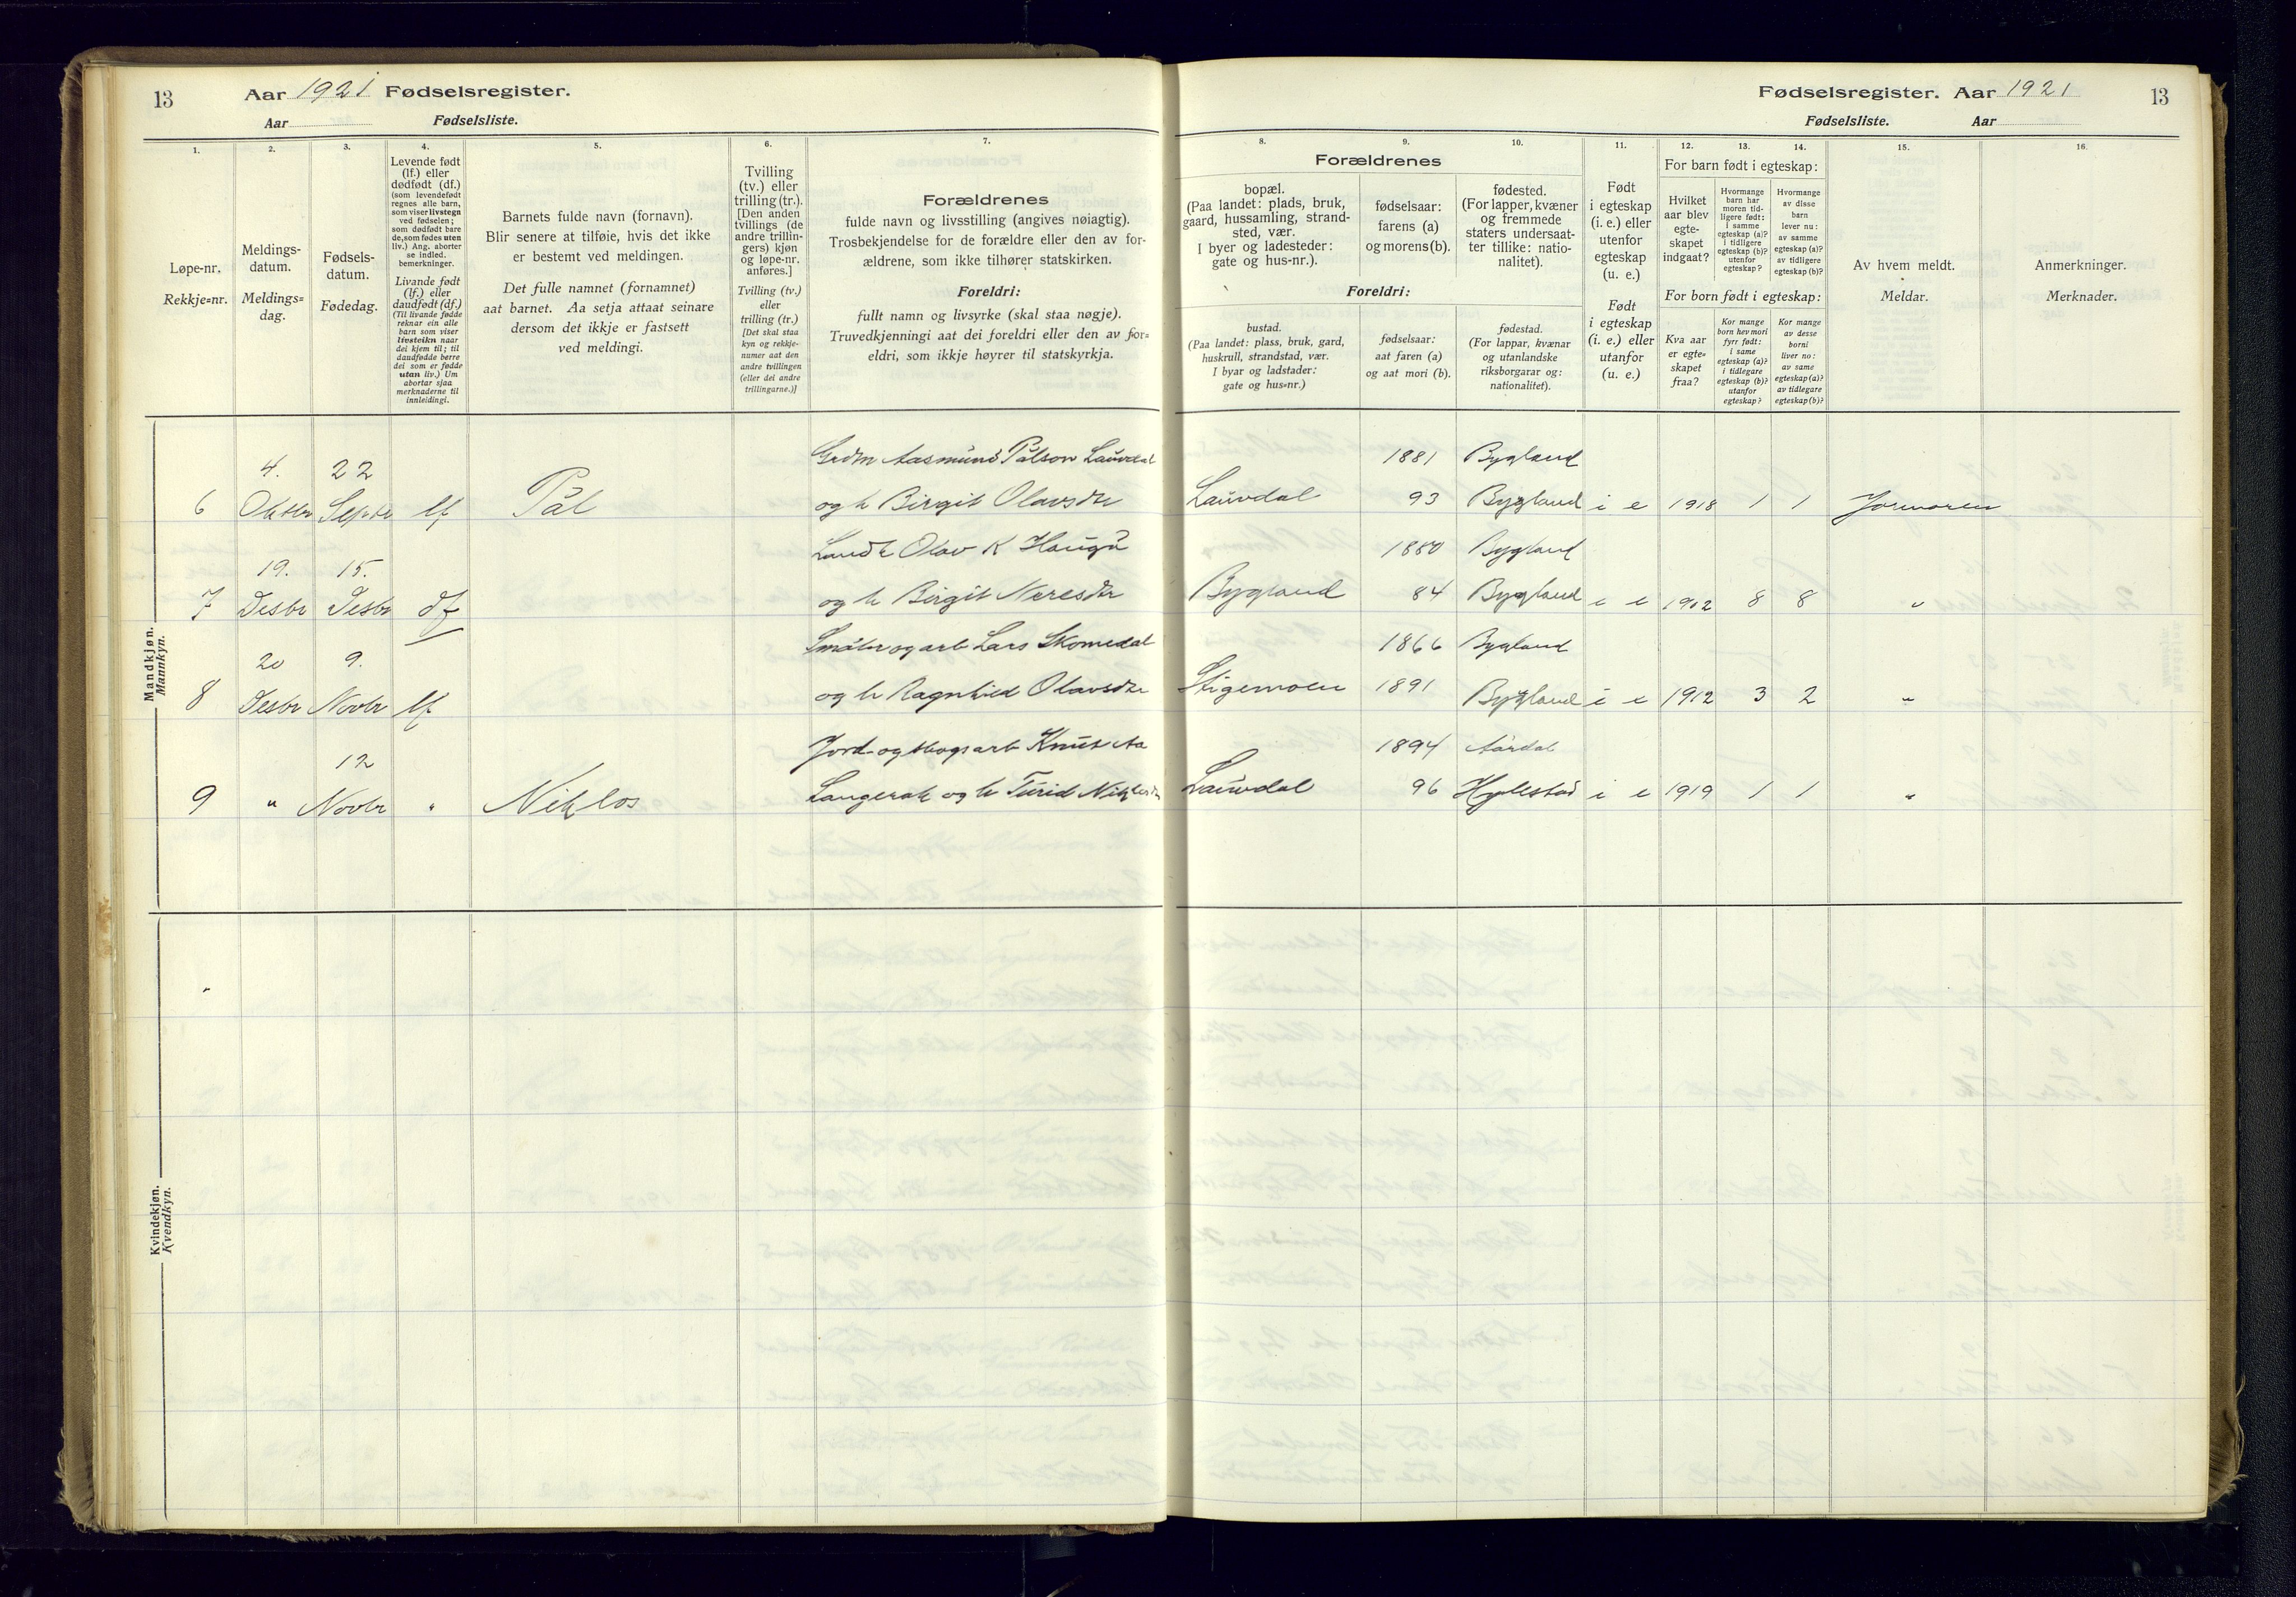 13
Aar 1921 Fødselsregister.
Aar Fødselsliste.
1.
2.
3.
4.
5.
6.
7.
Løpe-nr.
Rekkje=nr.
Meldings-
datum.
Meldings=
dag.
Fødsels-
datum.
Fødedag.
Levende født
(lf.) eller
dødfødt (df.)
(som levendefødt
regnes alle barn,
som viser livstegn
ved fødselen;
som dødfødt bare
de, som fødes uten
liv.) Ang. aborter
se indled.
bemerkninger.
Livande født
(lf.) eller
daudfødt (df.)
(Til livande fødde
reknar ein alle
barn som viser
livsteikn naar
dei kjem til; til
daudfødde berre
dei som er fødde
utan liv.) Um
abortar sjaa
merknaderne til
innleidingi.
Barnets fulde navn (fornavn).
Blir senere at tilføie, hvis det ikke
er bestemt ved meldingen.
Det fulle namnet (fornamnet)
aat barnet. Aa setja attaat seinare
dersom det ikkje er fastsett
ved meldingi.
Tvilling
(tv.) eller
trilling (tr.).
[Den anden
tvillings (de
andre trillin-
gers) kjøn
og løpe-nr.
anføres.]
Tvilling (tv.)
eller
trilling (tr.)
[Det skal staa
kyn og rekkje-
numer aat den
andre tvillingen
(eller dei andre
trillingarne.)]
Forældrenes
fulde navn og livsstilling (angives nøiagtig).
Trosbekjendelse for de forældre eller den av for-
ældrene, som ikke tilhører statskirken.
Foreldri:
fullt namn og livsyrke (skal staa nøgje).
Truvedkjenningi aat dei foreldri eller den av for=
eldri, som ikkje høyrer til statskyrkja.
Mandkjøn.
Mannkyn.
4. 22 Grdm Aasmund Pålson Lauvdal
6 Oktbr Septbr lf Pål og h Birgit Olavsdtr
19. 15. Olav K Haugå
7 Desbr Desbr df og h Birgit Neresdtr
20 9. Småbr og arb Lars Skomedal
8 Desbr Novbr lf og h Ragnhild Olavsdtr
12 Jord- og skogsarb Knut Aa
9 " Novbr " Niklos Langerak og h Turid
Kvindekjøn.
Kvendkyn.
Fødselsregister. Aar 1921 13
Fødselsliste. Aar
8.
9.
10.
11.
12.
13.
14.
15.
16.
Forældrenes
bopæl.
(Paa landet: plads, bruk,
gaard, hussamling, strand-
sted, vær.
I byer og ladesteder:
gate og hus-nr.).
fødselsaar:
farens (a)
og morens (b).
fødested.
(For lapper, kvæner
og fremmede
staters undersaat-
ter tillike: natio-
nalitet).
Foreldri:
bustad.
(Paa landet: plass, bruk, gard,
huskrull, strandstad, vær.
I byar og ladstader:
gate og hus=nr.)
fødselsaar:
aat faren (a)
og aat mori (b).
fødestad.
(For lappar, kvænar
og utanlandske
riksborgarar og:
nationalitet).
Født
i egteskap
(i. e.) eller
utenfor
egteskap
(u. e.)
Født
i egteskap
(i. e.) eller
utanfor
(u. e.)
For barn født i egteskap:
Hvilket
aar blev
egte-
skapet
indgaat?
Hvormange
barn har
moren tid-
ligere født:
i samme
egteskap (a)?
i tidligere
egteskap (b)?
utenfor
egteskap?
Hvormange
av disse
barn
lever nu:
av samme
egteskap (a)?
av tidligere
egteskap (b)?
For born født i egteskap:
Kva aar
er egte=
skapet
fraa?
Kor mange
born hev mori
fyrr født:
i same
egteskap (a)?
i tidlegare
egteskap (b)?
utanfor
egteskap?
Kor mange
av desse
borni
liver no:
av same
egteskap (a)?
av tidlegare
egteskap (b)?
Av hvem meldt.
Meldar.
Anmerkninger.
Merknader.
1881 Bygland
Lauvdal 93 Bygland i e 1918 1 1 Jormoren
1880 Bygland
Bygland 84 Bygland i e 1912 8 8 "
1866 Bygland
Stigemoen 1891 Bygland i e 1912 3 2 "
1894 Aardal
Lauvdal 96 Hylestad i e 1919 1 1 "